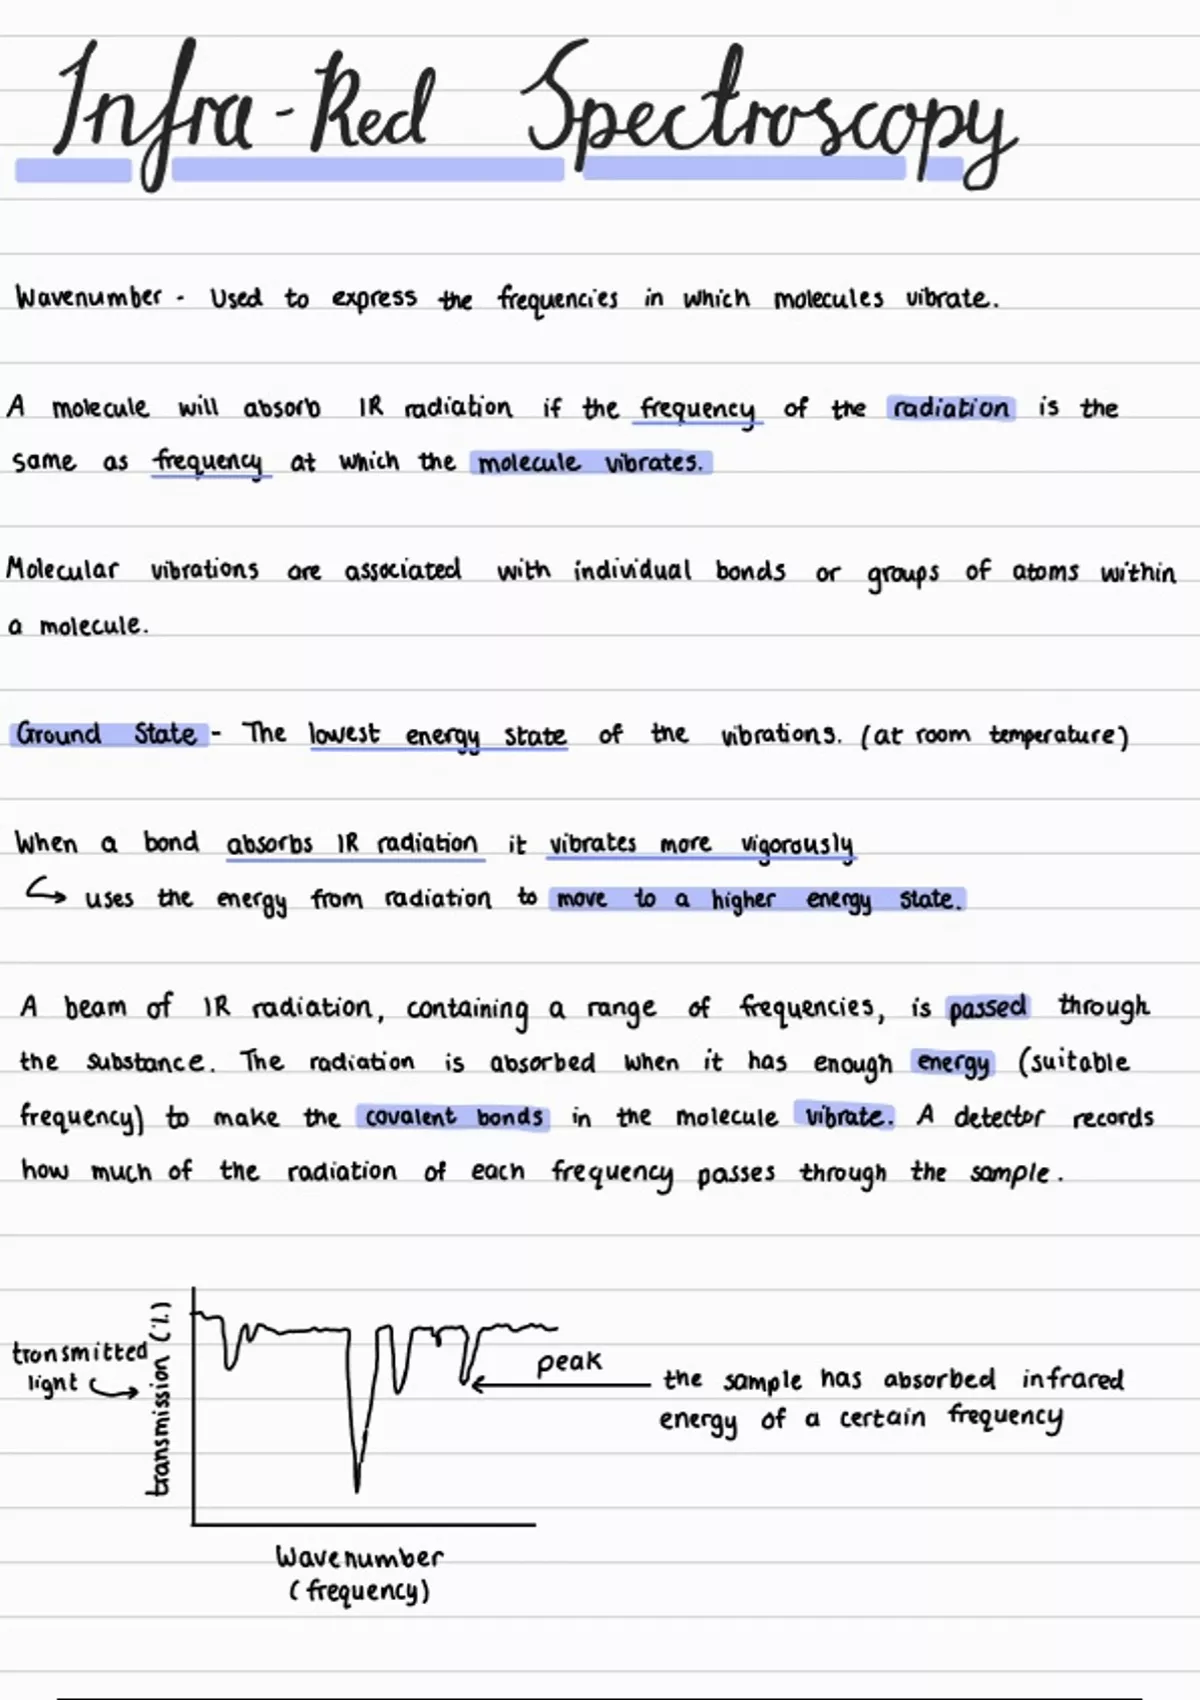 Infra-Red Spectroscopy
Wavenumber - Used to express the frequencies in which molecules vibrate.
A molecule will absorb IR radiation if the frequency of the radiation is the
same as frequency at which the molecule vibrates.
Molecular vibrations are associated with individual bonds or groups of atoms within
a molecule.
Ground State - The lowest energy state of the vibrations. (at room temperature)
When a bond absorbs IR radiation it vibrates more vigorously
↳ uses the energy from radiation to move to a higher energy state.
A beam of IR radiation, containing a range of frequencies, is passed through
the substance. The radiation is absorbed when it has enough energy (suitable
frequency) to make the covalent bonds in the molecule vibrate. A detector records
how much of the radiation of each frequency passes through the sample.
transmitted
light
transmission (%)
peak
the sample has absorbed infrared
energy of a certain frequency
Wavenumber
(frequency)